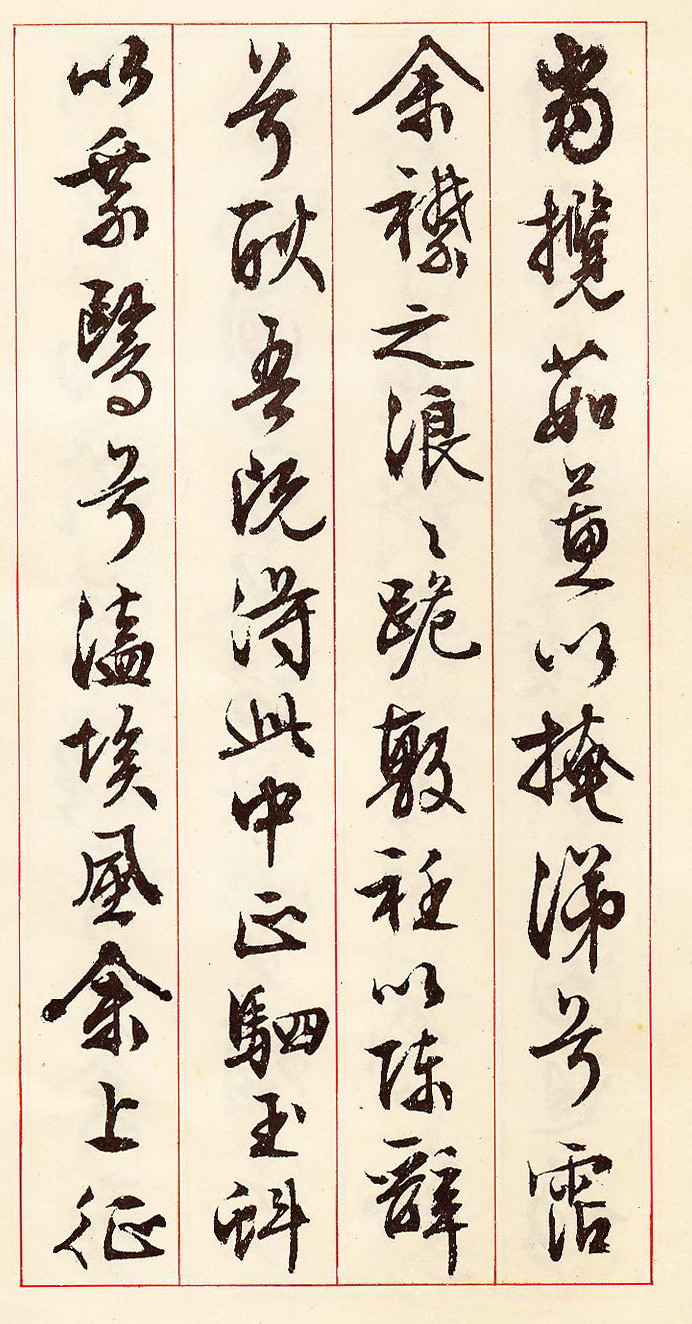 當攬茹蕙以掩涕兮霑
余襟之浪〻跪敷衽以陳辭
兮耿吾既得此中正駟玉虯
以乘鷖兮溘埃風余上征